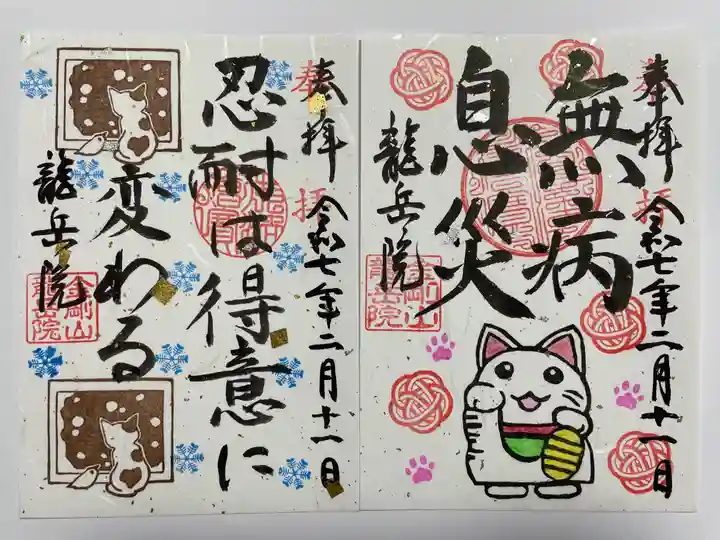 奉拝 令和七年二月十一日
奉拝
無病
息災
龍岳院
金剛山
龍岳院
奉拝 令和七年二月十一日
奉拝
忍耐は得意に
変わる
龍岳院
金剛山
龍岳院